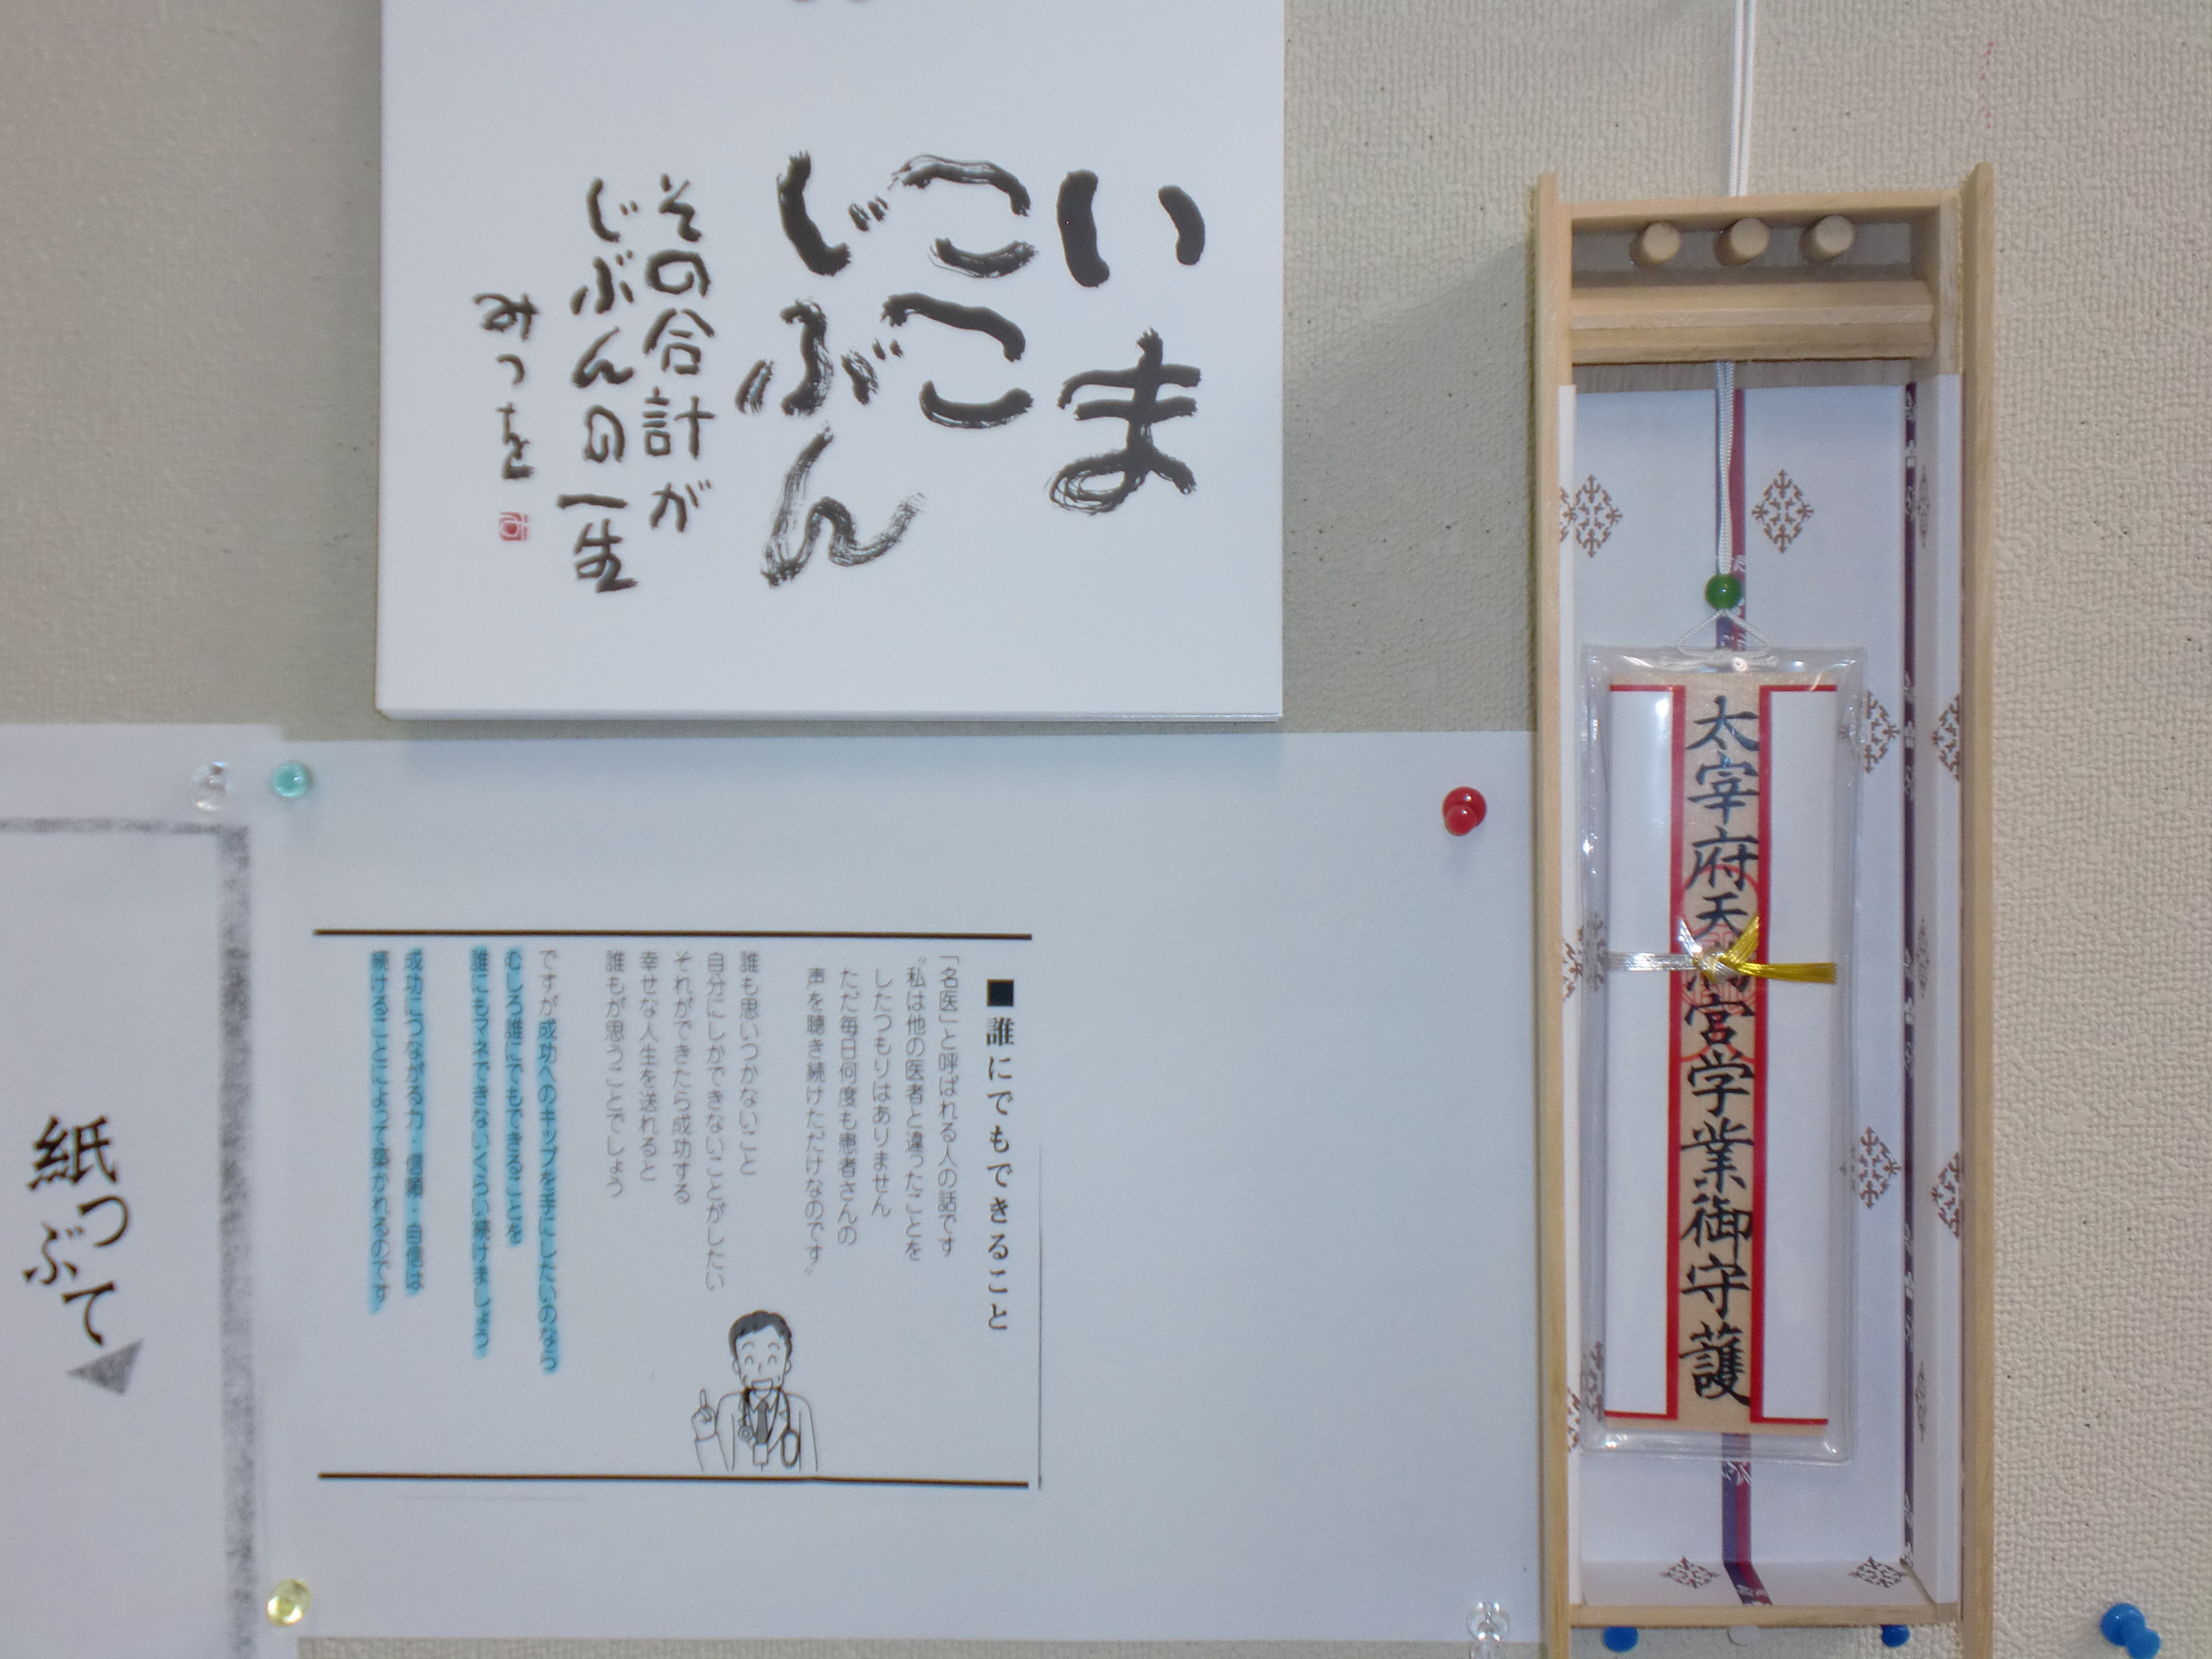 いま
ここ
じぶん
その合計が
じぶんの一生
みつを
太宰府天満宮学業御守護
■誰にでもできること
「名医」と呼ばれる人の話です
“私は他の医者と違ったことを
したつもりはありません
ただ毎日何度も患者さんの
声を聴き続けただけなのです”
誰も思いつかないこと
自分にしかできないことがしたい
それができたら成功する
幸せな人生を送れると
誰もが思うことでしょう
ですが成功へのキップを手にしたいのなら
むしろ誰にでもできることを
誰にもマネできないくらい続けましょう
成功につながる力・信頼・自信は
続けることによって築かれるのです
紙つぶて